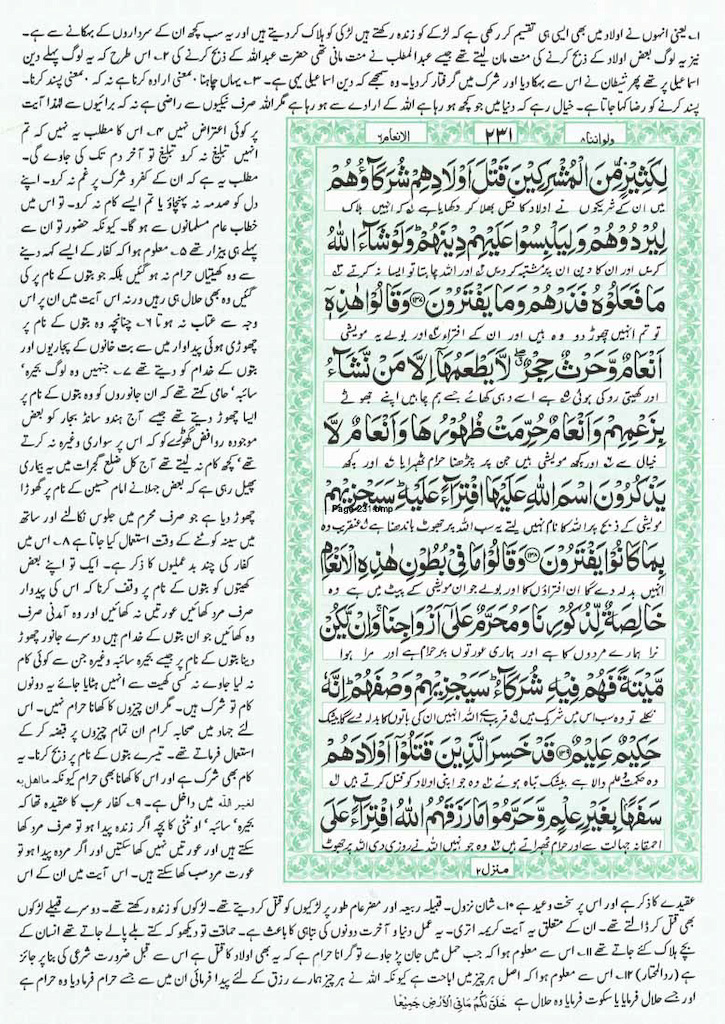 ۱۔ یعنی انہوں نے اولاد میں بھی ایسی ہی تقسیم کر رکھی ہے کہ لڑکے کو زندہ رکھتے ہیں لڑکی کو ہلاک کر دیتے ہیں اور یہ سب کچھ ان کے سرداروں کے بہکانے سے ہے۔
نیز یہ لوگ بعض اولاد کے ذبح کرنے کی منت مان لیتے تھے جیسے عبدالمطلب نے منت مانی تھی حضرت عبداللہ کے ذبح کرنے کی ۲۔ اس طرح کہ یہ لوگ پہلے دین
اسماعیلی پر تھے پھر شیطان نے اس سے بہکا دیا اور شرک میں گرفتار کر دیا۔ وہ سمجھے کہ دین اسماعیلی یہی ہے۔ ۳۔ یہاں چاہنا بمعنی ارادہ کرنا ہے نہ کہ بمعنی پسند کرنا۔
پسند کرنے کو رضا کہا جاتا ہے۔ خیال رہے کہ دنیا میں جو کچھ ہو رہا ہے اللہ کے ارادے سے ہو رہا ہے مگر اللہ صرف نیکیوں سے راضی ہے نہ کہ برائیوں سے لہذا آیت
ولو اننا ۸
۲۳۱
الانعام ۶
لِكَثِيرٍ مِّنَ الْمُشْرِكِينَ قَتْلَ أَوْلَادِهِمْ شُرَكَاؤُهُمْ
میں ان کے شریکوں نے اولاد کا قتل بھلا کر دکھایا ہے کہ انہیں ہلاک
لِيُرْدُوهُمْ وَلِيَلْبِسُوا عَلَيْهِمْ دِينَهُمْ وَلَوْ شَاءَ اللَّهُ
کریں اور ان کا دین ان پر مشتبہ کر دیں اور اللہ چاہتا تو ایسا نہ کرتے
مَا فَعَلُوهُ فَذَرْهُمْ وَمَا يَفْتَرُونَ ۝۱۳۷ وَقَالُوا هَٰذِهِ
تو تم انہیں چھوڑ دو وہ ہیں اور ان کے افتراء اور بولے یہ مویشی
أَنْعَامٌ وَحَرْثٌ حِجْرٌ لَّا يَطْعَمُهَا إِلَّا مَن نَّشَاءُ
اور کھیتی روکی ہوئی ہے اسے وہی کھائے جسے ہم چاہیں اپنے جھوٹے
بِزَعْمِهِمْ وَأَنْعَامٌ حُرِّمَتْ ظُهُورُهَا وَأَنْعَامٌ لَّا
خیال سے اور کچھ مویشی ہیں جن پر چڑھنا حرام ٹھہرایا اور کچھ
يَذْكُرُونَ اسْمَ اللَّهِ عَلَيْهَا افْتِرَاءً عَلَيْهِ سَيَجْزِيهِمْ
Page 231.bmp
مویشی کے ذبح پر اللہ کا نام نہیں لیتے یہ سب اللہ پر جھوٹ باندھنا ہے عنقریب وہ
بِمَا كَانُوا يَفْتَرُونَ ۝۱۳۸ وَقَالُوا مَا فِي بُطُونِ هَٰذِهِ الْأَنْعَامِ
انہیں بدلہ دے گا ان افتراؤں کا اور بولے جو ان مویشی کے پیٹ میں ہے وہ
خَالِصَةٌ لِّذُكُورِنَا وَمُحَرَّمٌ عَلَىٰ أَزْوَاجِنَا وَإِن يَكُن
نرا ہمارے مردوں کا ہے اور ہماری عورتوں پر حرام ہے اور مرا ہوا
مَّيْتَةً فَهُمْ فِيهِ شُرَكَاءُ سَيَجْزِيهِمْ وَصْفَهُمْ إِنَّهُ
نکلے تو وہ سب اس میں شریک ہیں قریب ہے اللہ انہیں ان کی باتوں کا بدلہ دے گا بیشک
حَكِيمٌ عَلِيمٌ ۝۱۳۹ قَدْ خَسِرَ الَّذِينَ قَتَلُوا أَوْلَادَهُمْ
وہ حکمت و علم والا ہے بیشک تباہ ہوئے وہ جو اپنی اولاد کو قتل کرتے ہیں
سَفَهًا بِغَيْرِ عِلْمٍ وَحَرَّمُوا مَا رَزَقَهُمُ اللَّهُ افْتِرَاءً عَلَى
احمقانہ جہالت سے اور حرام ٹھہراتے ہیں وہ جو انہیں اللہ نے روزی دی اللہ پر جھوٹ
منزل ۲
پر کوئی اعتراض نہیں ۴۔ اس کا مطلب یہ نہیں کہ تم
انہیں تبلیغ نہ کرو تبلیغ تو آخر دم تک کی جاوے گی۔
مطلب یہ ہے کہ ان کے کفر و شرک پر غم نہ کرو۔ اپنے
دل کو صدمہ نہ پہنچاؤ یا تم ایسے کام نہ کرو۔ تو اس میں
خطاب عام مسلمانوں سے ہو گا۔ کیونکہ حضور تو ان سے
پہلے ہی بیزار تھے ۵۔ معلوم ہوا کہ کفار کے ایسے کہہ دینے
سے وہ کھیتیاں حرام نہ ہو گئیں بلکہ جو بتوں کے نام پر کی
گئیں وہ بھی حلال ہی رہیں ورنہ اس آیت میں ان پر اس
وجہ سے عتاب نہ ہوتا ۶۔ چنانچہ وہ بتوں کے نام پر
چھوڑی ہوئی پیداوار میں سے بت خانوں کے پجاریوں اور
بتوں کے خدام کو دیتے تھے ۷۔ جنہیں وہ لوگ بحیرہ'
سائبہ' حامی کہتے تھے کہ ان جانوروں کو وہ بتوں کے نام پر
ایسا چھوڑ دیتے تھے جیسے آج ہندو سانڈ بجار کو بعض
موجودہ روافض گھوڑے کو کہ اس پر سواری وغیرہ نہ کرتے
تھے' کچھ کام نہ لیتے تھے آج کل ضلع گجرات میں یہ بیماری
پھیل رہی ہے کہ بعض جہلانے امام حسین کے نام پر گھوڑا
چھوڑ دیا ہے جو صرف محرم میں جلوس نکالنے اور ساتھ
میں سینہ کوٹنے کے وقت استعمال کیا جاتا ہے ۸۔ اس میں
کفار کی چند بدعملیوں کا ذکر ہے۔ ایک تو اپنے بعض
کھیتوں کو بتوں کے نام پر وقف کرنا کہ اس کی پیداوار
صرف مرد کھائیں عورتیں نہ کھائیں اور وہ آمدنی صرف
وہ کھائیں جو ان بتوں کے خدام ہیں دوسرے جانور چھوڑ
دینا بتوں کے نام پر جیسے بحیرہ سائبہ وغیرہ جن سے کوئی کام
نہ لیا جاوے نہ کسی کھیت سے انہیں ہٹایا جائے یہ دونوں
کام تو شرک ہیں۔ مگر ان چیزوں کا کھانا حرام نہیں۔ اس
لئے جہاد میں صحابہ کرام ان تمام چیزوں پر قبضہ کر کے
استعمال فرماتے تھے۔ تیسرے بتوں کے نام پر ذبح کرنا۔ یہ
کام بھی شرک ہے اور اس کا کھانا بھی حرام کیونکہ ما اھل بہ
لغیر اللہ میں داخل ہے۔ ۹۔ کفار عرب کا عقیدہ تھا کہ
بحیرہ' سائبہ' اونٹنی کا بچہ اگر زندہ پیدا ہو تو صرف مرد کھا
سکتے ہیں اور عورتیں نہیں کھا سکتیں اور اگر مردہ پیدا ہو تو
عورت مرد سب کھا سکتے ہیں۔ اس آیت میں ان کے اس
عقیدے کا ذکر ہے اور اس پر سخت وعید ہے ۱۰۔ شان نزول۔ قبیلہ ربیعہ اور مضر عام طور پر لڑکیوں کو قتل کر دیتے تھے۔ لڑکوں کو زندہ رکھتے تھے۔ دوسرے قبیلے لڑکوں
بھی قتل کر ڈالتے تھے۔ ان کے متعلق یہ آیت کریمہ اتری۔ یہ عمل دنیا و آخرت دونوں کی تباہی کا باعث ہے۔ حماقت تو دیکھو کہ کتے بلے پالے جاتے تھے انسان کے
بچے ہلاک کئے جاتے تھے ۱۱۔ اس سے معلوم ہوا کہ جب حمل میں جان پڑ جاوے تو گرانا حرام ہے کہ یہ بھی اولاد کا قتل ہے اس سے قبل ضرورت شرعی کی بنا پر جائز
ہے (ردالمختار) ۱۲۔ اس سے معلوم ہوا کہ اصل ہر چیز میں اباحت ہے کیونکہ اللہ نے ہر چیز ہمارے رزق کے لئے پیدا فرمائی ان میں سے جسے حرام فرما دیا وہ حرام ہے
اور جسے حلال فرمایا یا سکوت فرمایا وہ حلال ہے خَلَقَ لَكُمْ مَّا فِي الْأَرْضِ جَمِيعًا